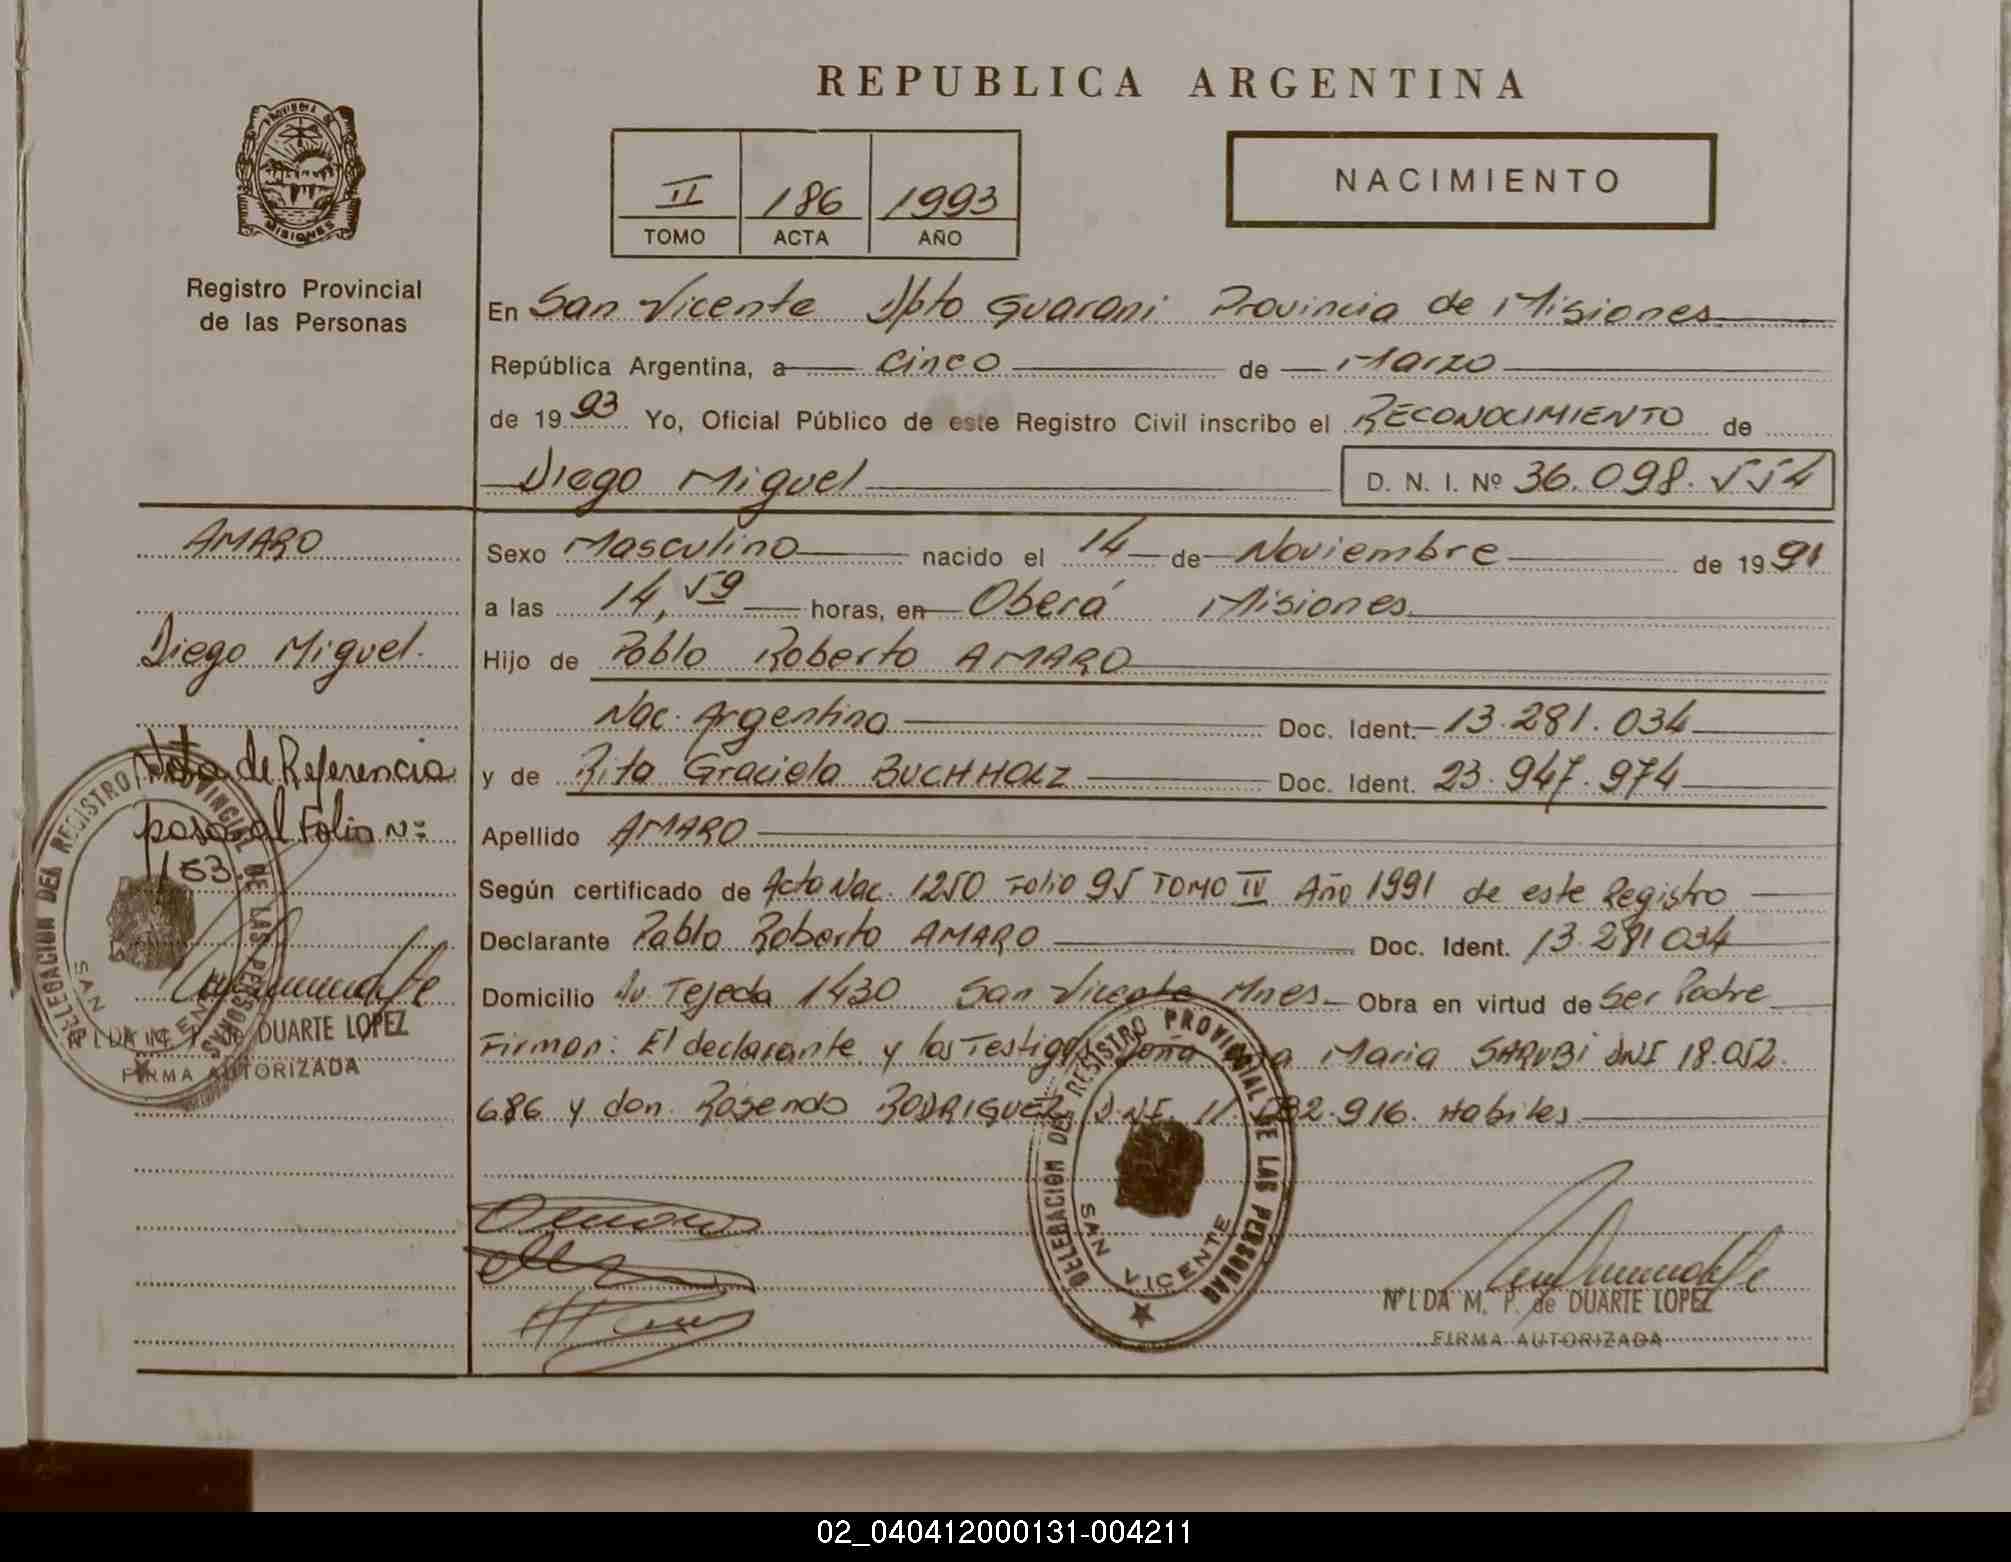 REPUBLICA ARGENTINA
PROVINCIA DE
MISIONES
Registro Provincial
de las Personas
II 186 1993
TOMO ACTA AÑO
NACIMIENTO
En San Vicente Dpto Guarani Provincia de Misiones
República Argentina, a cinco de Marzo
de 1993 Yo, Oficial Público de este Registro Civil inscribo el RECONOCIMIENTO de
Diego Miguel D. N. I. Nº 36.098.554
AMARO
Diego Miguel.
Nota de Referencia
paso al Folio Nº
153.
DELEGACION DEL REGISTRO PROVINCIAL DE LAS PERSONAS
SAN VICENTE
DUARTE LOPEZ
FIRMA AUTORIZADA
Sexo Masculino nacido el 14 de Noviembre de 1991
a las 14,59 horas, en Oberá Misiones
Hijo de Pablo Roberto AMARO
Nac. Argentina Doc. Ident. 13.281.034
y de Rita Graciela BUCHHOLZ Doc. Ident. 23.947.974
Apellido AMARO
Según certificado de Acta Nac. 1250 Folio 95 TOMO IV Año 1991 de este Registro
Declarante Pablo Roberto AMARO Doc. Ident. 13.281034
Domicilio Av. Tejeda 1430 San Vicente Mnes. Obra en virtud de Ser Padre
Firman: El declarante y los Testigos doña Maria SARUBI DNI 18.052.
686 y don Rosendo RODRIGUEZ D.N.I. 11. 2.916. Habiles
DELEGACION DEL REGISTRO PROVINCIAL DE LAS PERSONAS
SAN VICENTE
NILDA M. P. de DUARTE LOPEZ
FIRMA AUTORIZADA
02_040412000131-004211